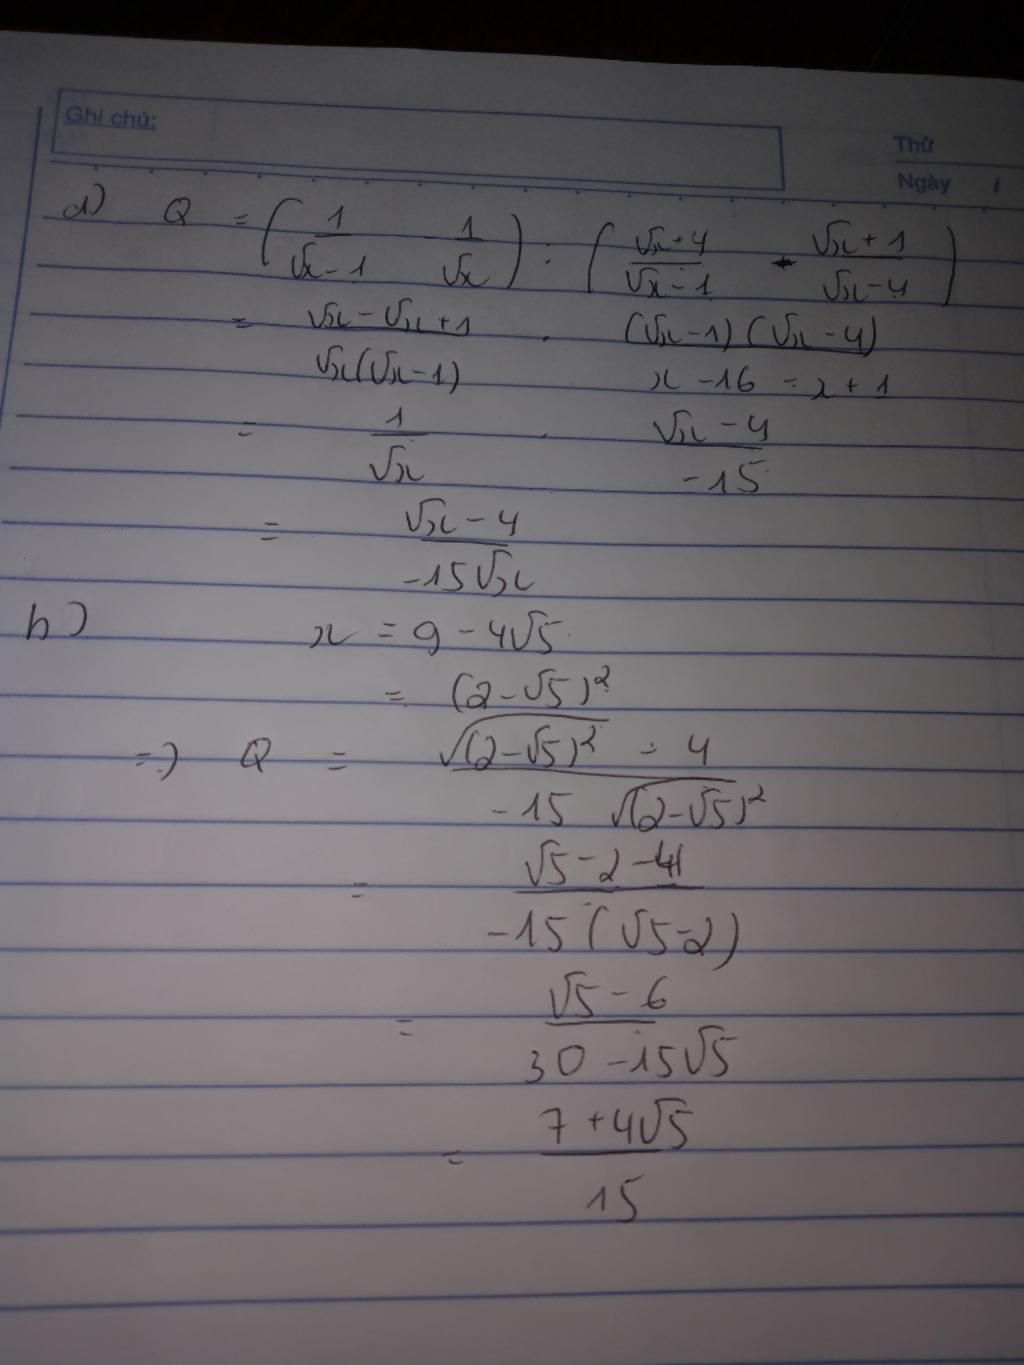 Ghi chú:
Thứ
Ngày /
a) Q = (1/(√x - 1) - 1/√x) : ((√x + 4)/(√x - 1) - (√x + 1)/(√x - 4))
= (√x - √x + 1)/(√x(√x - 1)) . ((√x - 1)(√x - 4))/(x - 16 - x + 1)
= 1/√x . (√x - 4)/(-15)
= (√x - 4)/(-15√x)
b) x = 9 - 4√5
= (2 - √5)²
=> Q = (√(2 - √5)² - 4)/(-15 √(2 - √5)²)
= (√5 - 2 - 4)/(-15(√5 - 2))
= (√5 - 6)/(30 - 15√5)
= (7 + 4√5)/15